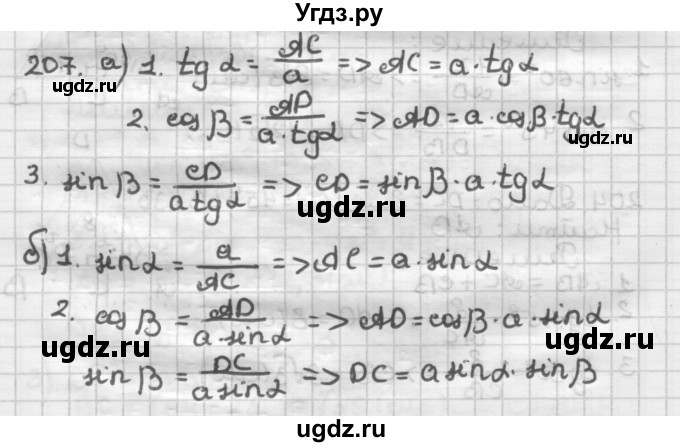 Угдз.ру
207. а) 1. tg α = AC/a => AC = a · tg α
2. cos β = AD/(a · tg α) => AD = a · cos β · tg α
ugdz.ru ugdz.ru
3. sin β = CD/(a tg α) => CD = sin β · a · tg α
ugdz.ru
б) 1. sin α = a/AC => AC = a · sin α
ugdz.ru
2. cos β = AD/(a · sin α) => AD = cos β · a · sin α
ugdz.ru ugdz.ru
sin β = DC/(a sin α) => DC = a sin α · sin β
ugdz.ru ugdz.ru